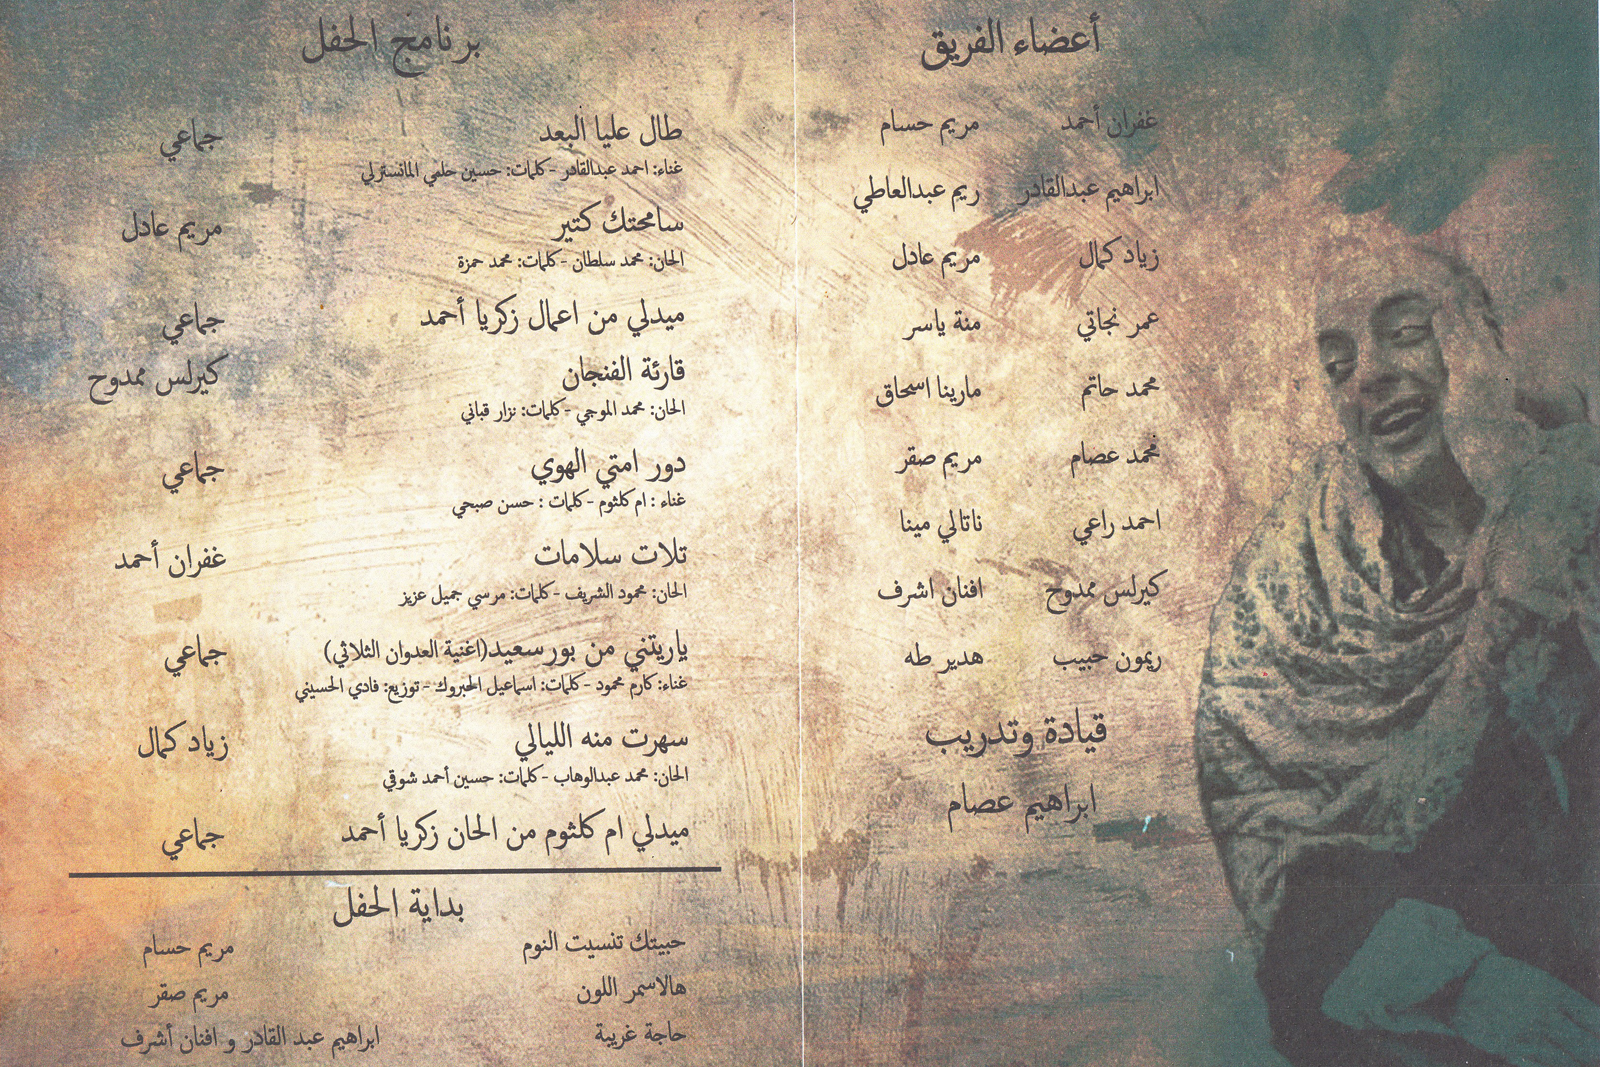 أعضاء الفريق
غفران أحمد مريم حسام
ابراهيم عبدالقادر ريم عبدالعاطي
زياد كمال مريم عادل
عمر نجاتي منة ياسر
محمد حاتم مارينا اسحاق
محمد عصام مريم صقر
احمد راعي ناتالي مينا
كيرلس ممدوح افنان اشرف
ريمون حبيب هدير طه
قيادة وتدريب
ابراهيم عصام
برنامج الحفل
طال عليا البعد جماعي
غناء: احمد عبدالقادر -كلمات: حسين حلمي المانسترلي
سامحتك كتير مريم عادل
الحان: محمد سلطان -كلمات: محمد حمزة
ميدلي من اعمال زكريا أحمد جماعي
قارئة الفنجان كيرلس ممدوح
الحان: محمد الموجي -كلمات: نزار قباني
دور امتي الهوي جماعي
غناء : ام كلثوم -كلمات : حسن صبحي
تلات سلامات غفران أحمد
الحان: محمود الشريف -كلمات: مرسي جميل عزيز
ياريتني من بورسعيد(اغنية العدوان الثلاثي) جماعي
غناء: كارم محمود -كلمات: اسماعيل الحبروك - توزيع: فادي الحسيني
سهرت منه الليالي زياد كمال
الحان: محمد عبدالوهاب -كلمات: حسين أحمد شوقي
ميدلي ام كلثوم من الحان زكريا أحمد جماعي
بداية الحفل
حبيتك تنسيت النوم مريم حسام
هالاسمر اللون مريم صقر
حاجة غريبة ابراهيم عبد القادر و افنان أشرف